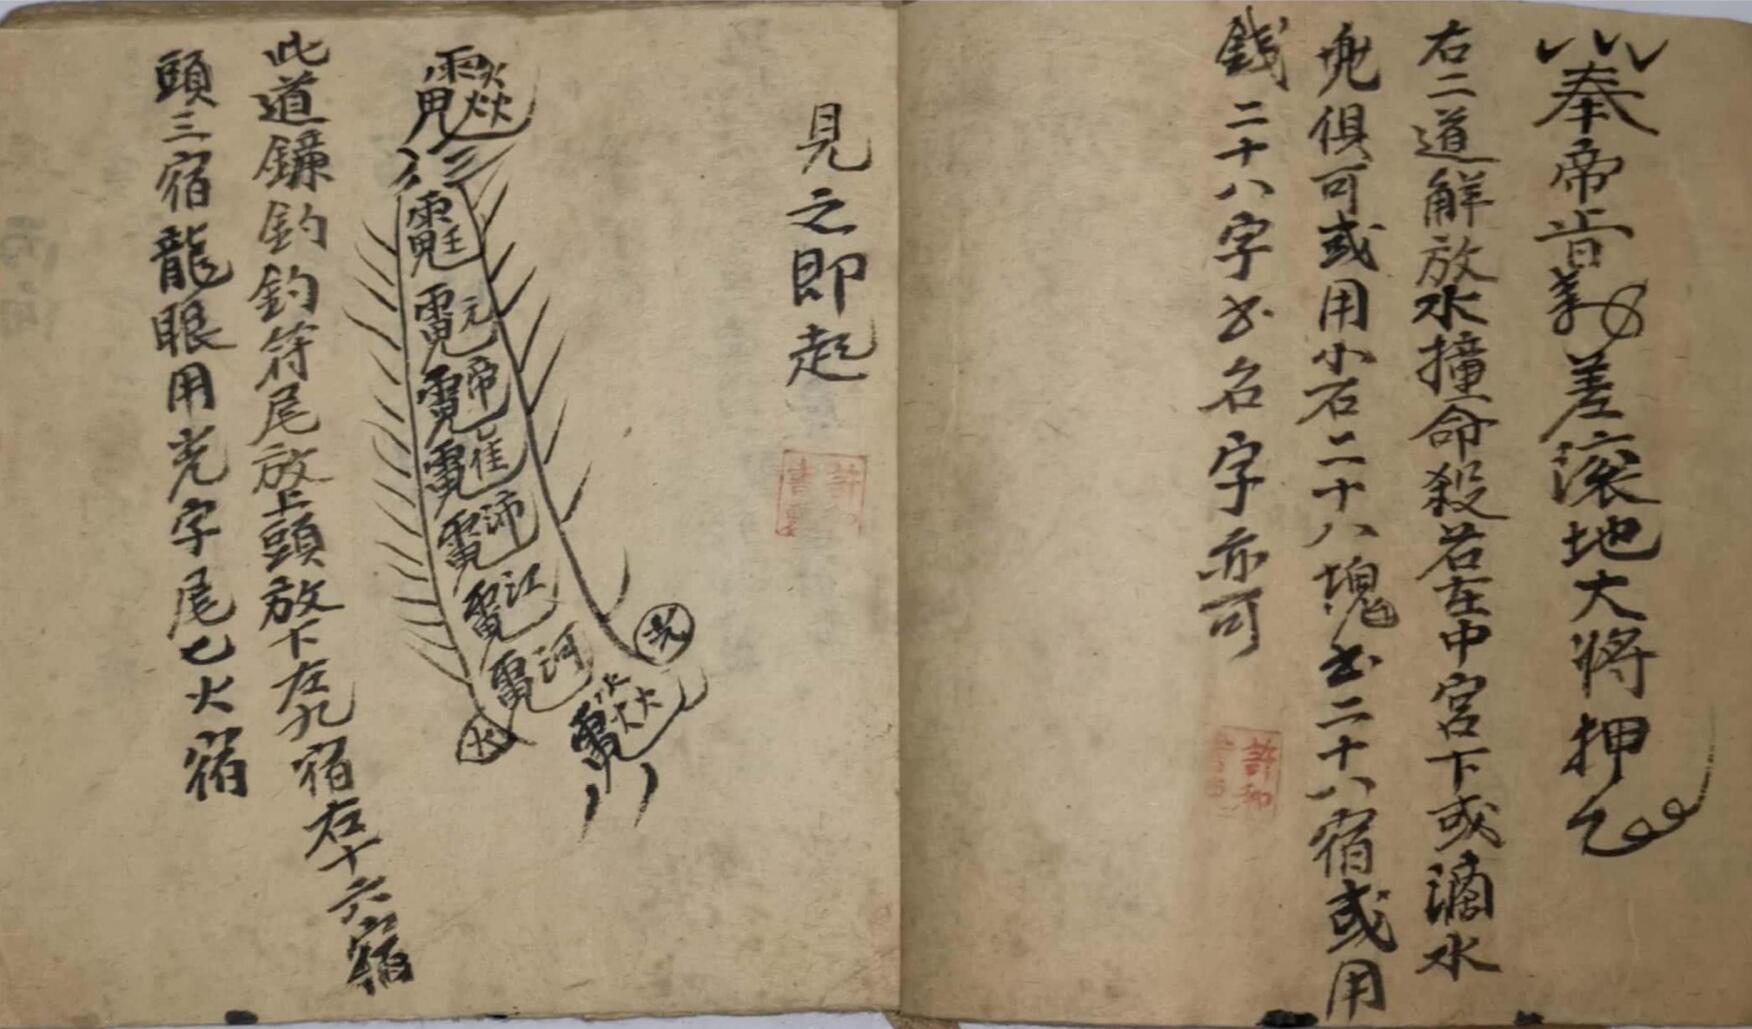 奉帝旨差滚地大將押
右二道解放水撞命殺若在中宮下或滴水
兠俱可或用小石二十八塊書二十八宿或用
錢二十八字書名字亦可
許和
見之即起
河
江
沛
帝
元
王
光
火
此道鐮鈎鈎符尾放上頭放下左九宿右十六宿
頭三宿龍眼用光字尾七火宿